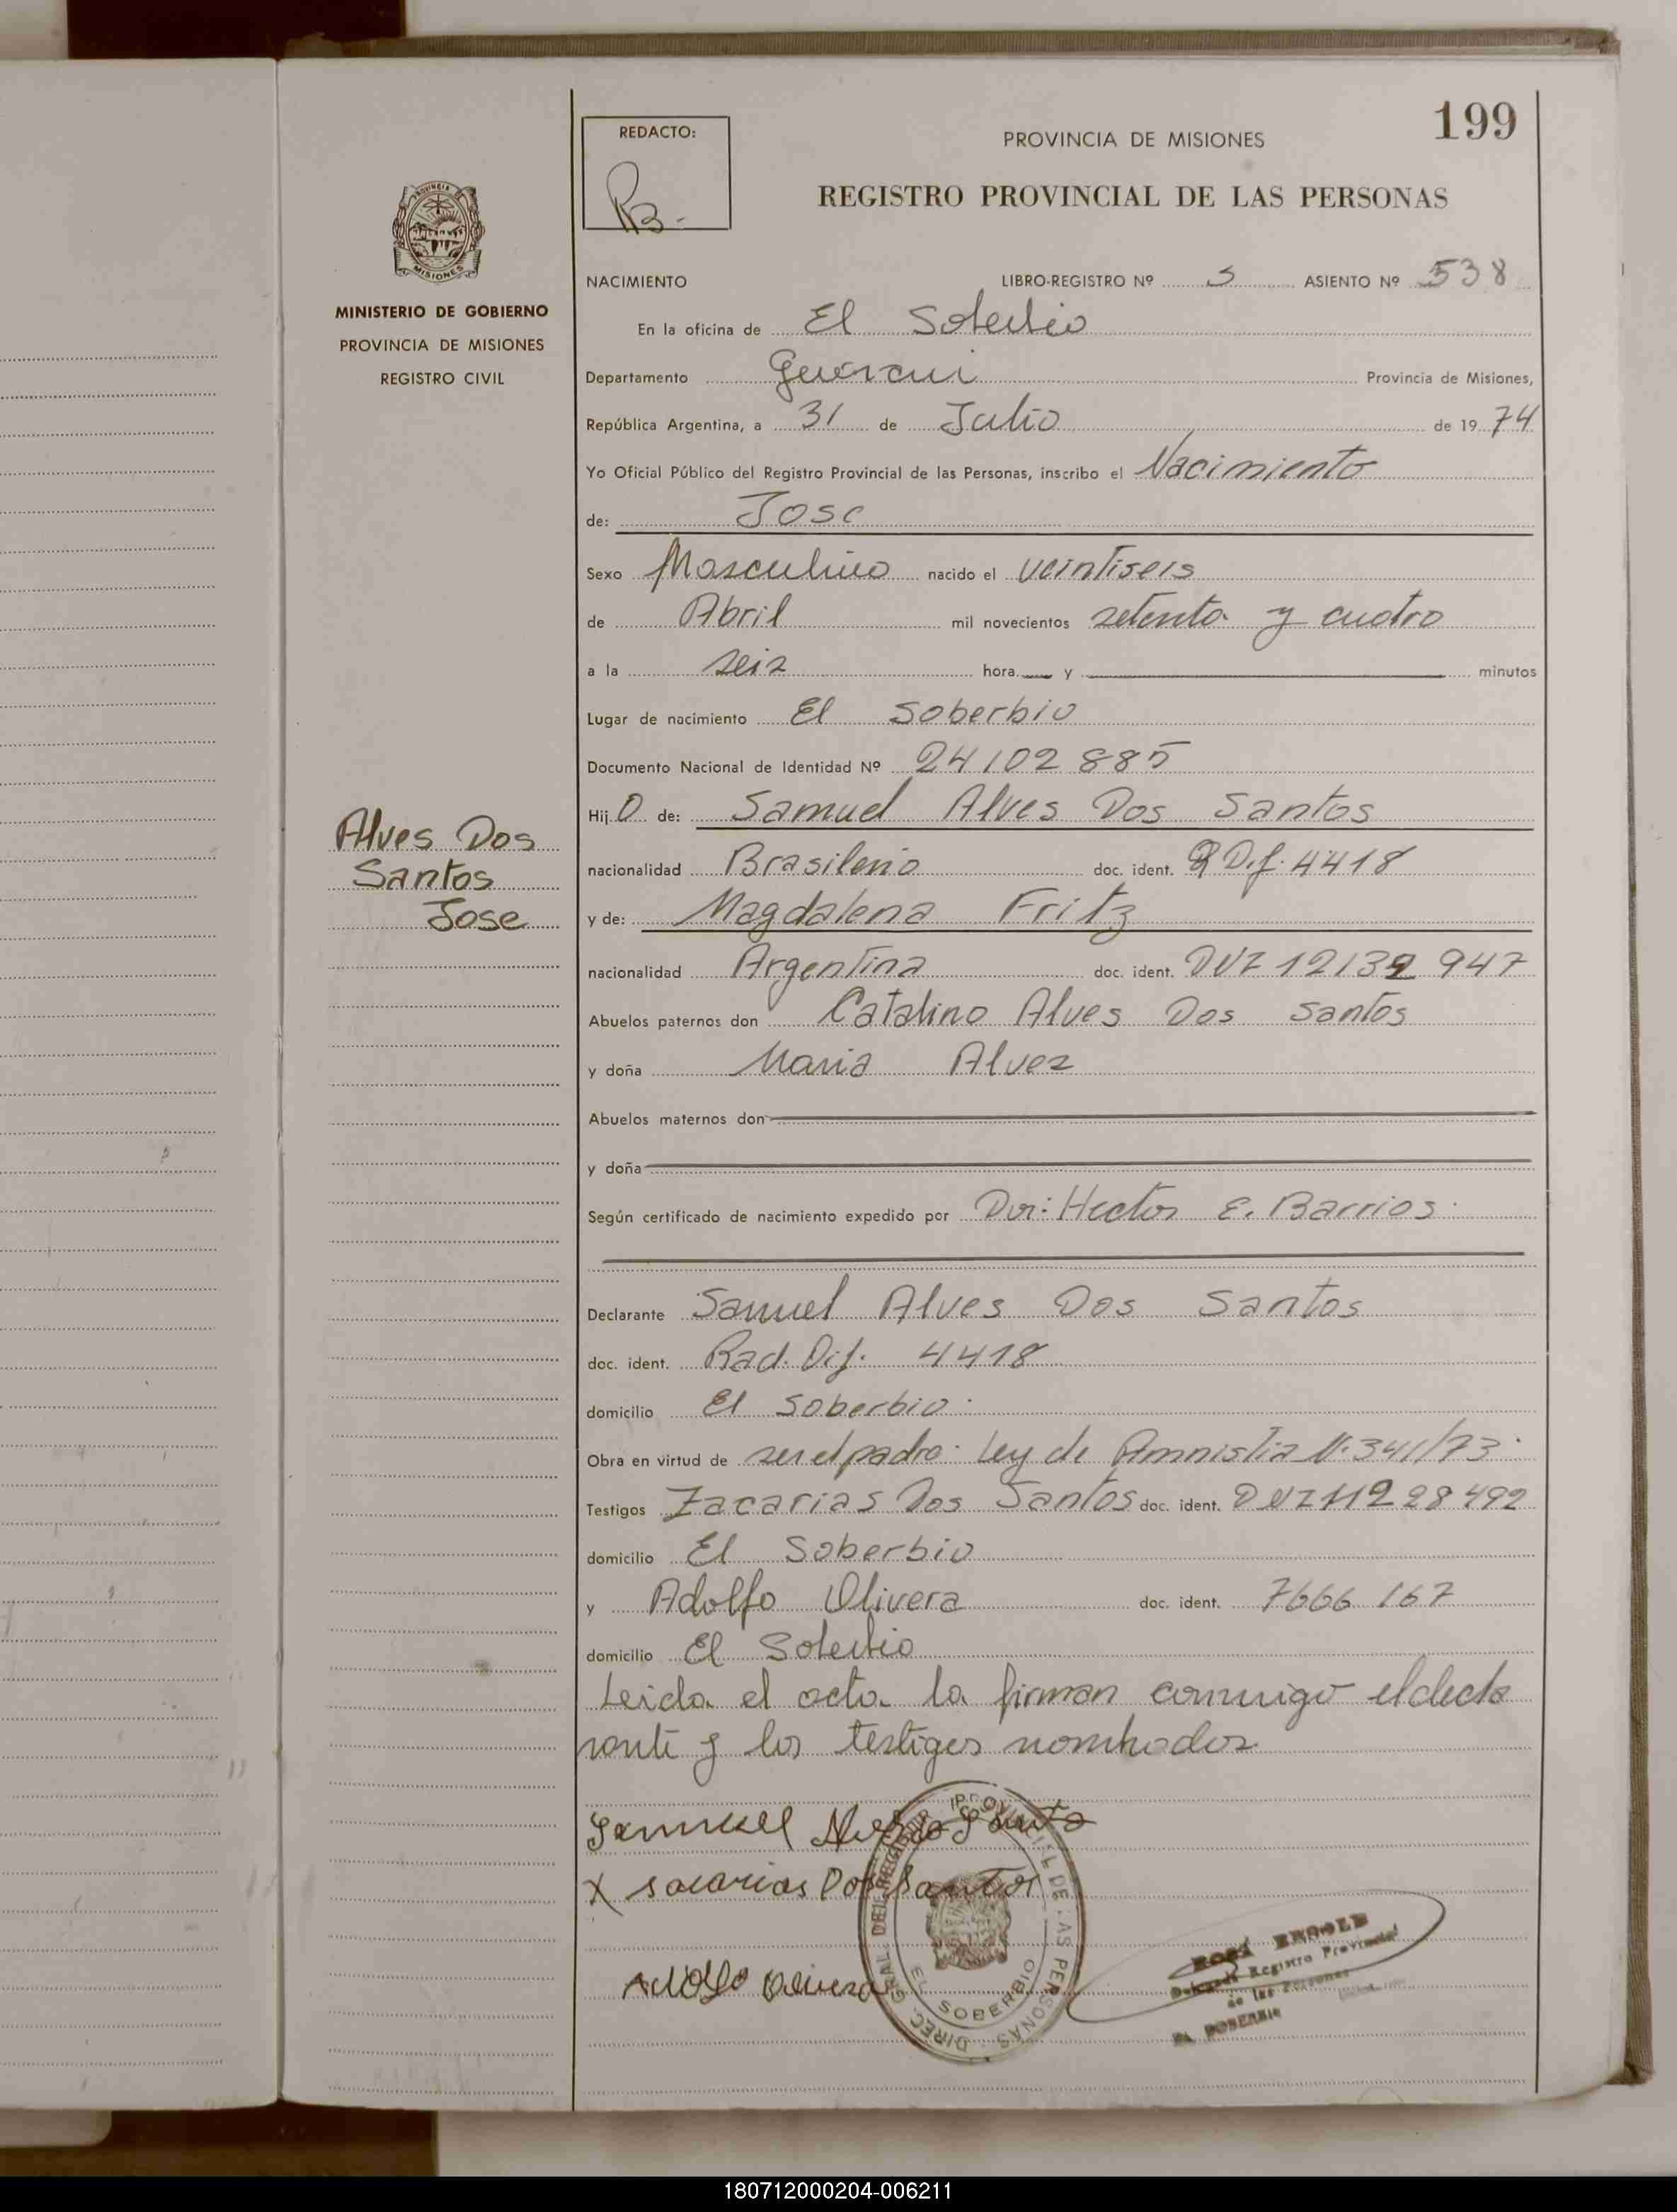 199
REDACTO:
PROVINCIA DE MISIONES
REGISTRO PROVINCIAL DE LAS PERSONAS
PROVINCIA DE
MISIONES
MINISTERIO DE GOBIERNO
PROVINCIA DE MISIONES
REGISTRO CIVIL
NACIMIENTO LIBRO-REGISTRO Nº 5 ASIENTO Nº 538
En la oficina de El Soberbio
Departamento Guarani Provincia de Misiones,
República Argentina, a 31 de Julio de 19 74
Yo Oficial Público del Registro Provincial de las Personas, inscribo el Nacimiento
de: Jose
Sexo Masculino nacido el veintiseis
de Abril mil novecientos setenta y cuatro
a la seis hora y minutos
Lugar de nacimiento El Soberbio
Documento Nacional de Identidad Nº 24102885
Hij o de: Samuel Alves Dos Santos
Alves Dos
Santos
Jose
nacionalidad Brasileño doc. ident. R Dif. 4418
y de: Magdalena Fritz
nacionalidad Argentina doc. ident. DNI 12139 947
Abuelos paternos don Catalino Alves Dos Santos
y doña Maria Alvez
Abuelos maternos don
y doña
Según certificado de nacimiento expedido por Dr: Hector E. Barrios
Declarante Samuel Alves Dos Santos
doc. ident. Rad. Dif. 4418
domicilio El Soberbio
Obra en virtud de ser el padre. Ley de Amnistia N. 341/73
Testigos Zacarias Dos Santos doc. ident. DNI 11228492
domicilio El Soberbio
y Adolfo Olivera doc. ident. 7666 167
domicilio El Soberbio
Leida el acta la firman conmigo el decla
rante y los testigos nombrados
Samuel
X sacarias Dos Santos
Adolfo Olivera
DIREC. GRAL. DEL REGISTRO PROVINCIAL DE LAS PERSONAS
EL SOBERBIO
Delegado Registro Provincial
de las Personas
EL SOBERBIO
180712000204-006211